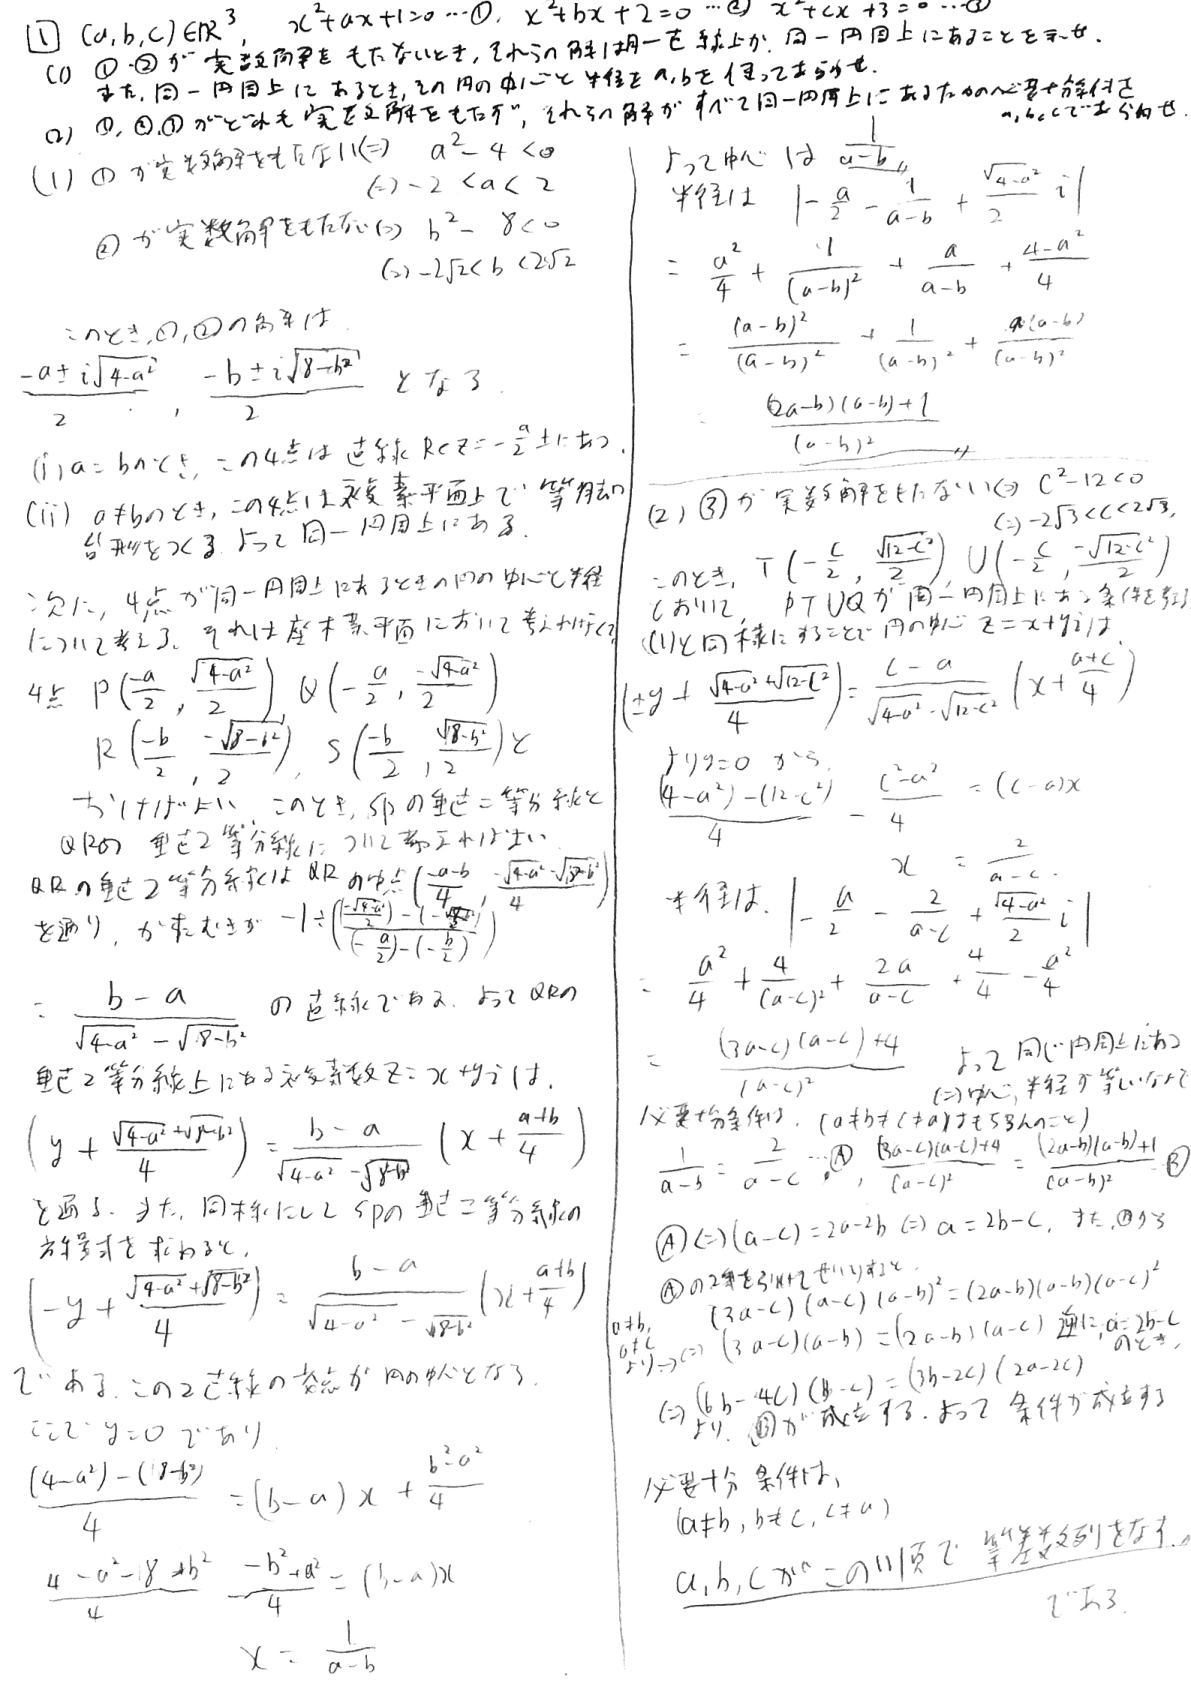 1 (a,b,c)∈R³, x²+ax+1=0 …①, x²+bx+2=0 …② x²+cx+3=0 …③
(1) ①,②が実数解をもたないとき,それらの解は同一直線上か,同一円周上にあることを示せ.
また,同一円周上にあるとき,その円の中心と半径をa,bを使ってあらわせ.
(2) ①,②,③がどれも実数解をもたず,それらの解がすべて同一円周上にあるための必要十分条件を
a,b,cであらわせ
(1) ①が実数解をもたない⇔ a²-4<0
⇔ -2<a<2
②が実数解をもたない⇔ b²-8<0
⇔ -2√2<b<2√2
このとき,①,②の解は
(-a±i√(4-a²))/2 , (-b±i√(8-b²))/2 となる.
(i) a=bのとき,この4点は直線 Re z=-a/2上にあり.
(ii) a≠bのとき,この4点は複素平面上で等脚
台形をつくる.よって同一円周上にある.
次に,4点が同一円周上にあるときの円の中心と半径
について考える.それは座標平面において考え
4点 P(-a/2, √(4-a²)/2) Q(-a/2, -√(4-a²)/2)
R(-b/2, -√(8-b²)/2), S(-b/2, √(8-b²)/2)と
おけばよい.このとき,SPの垂直二等分線と
QRの垂直2等分線について考えればよい
QRの垂直2等分線はQRの中点((-a-b)/4, (-√(4-a²)-√(8-b²))/4)
を通り,かたむきが -1÷(((-√(4-a²)/2)-(-√(8-b²)/2))/((-a/2)-(-b/2)))
= (b-a)/(√(4-a²)-√(8-b²)) の直線である.よってQRの
垂直2等分線上にある複素数z=x+yiは,
(y+(√(4-a²)+√(8-b²))/4) = (b-a)/(√(4-a²)-√(8-b²)) (x+(a+b)/4)
を通る.また,同様にしてSPの垂直二等分線の
方程式を求めると,
(-y+(√(4-a²)+√(8-b²))/4) = (b-a)/(√(4-a²)-√(8-b²)) (x+(a+b)/4)
である.この2直線の交点が円の中心となる.
ここで y=0 であり
((4-a²)-(8-b²))/4 = (b-a)x + (b²-a²)/4
(4-a²-8+b²)/4 (-b²+a²)/4 = (b-a)x
x = 1/(a-b)
よって中心は 1/(a-b)
半径は |-a/2 - 1/(a-b) + √(4-a²)/2 i|
= a²/4 + 1/(a-b)² + a/(a-b) + (4-a²)/4
= (a-b)²/(a-b)² + 1/(a-b)² + a(a-b)/(a-b)²
= ((2a-b)(a-b)+1)/(a-b)²
(2) ③が実数解をもたない⇔ c²-12<0
⇔ -2√3<c<2√3.
このとき, T(-c/2, √(12-c²)/2) U(-c/2, -√(12-c²)/2)
とおいて PTUQが同一円周上にある条件を考える
(1)と同様にすることで円の中心 z=x+yiは,
(±y+(√(4-a²)+√(12-c²))/4) = (c-a)/(√(4-a²)-√(12-c²)) (x+(a+c)/4)
よりy=0 から,
((4-a²)-(12-c²))/4 - (c²-a²)/4 = (c-a)x
x = 2/(a-c).
半径は, |-a/2 - 2/(a-c) + √(4-a²)/2 i|
= a²/4 + 4/(a-c)² + 2a/(a-c) + 4/4 - a²/4
= ((3a-c)(a-c)+4)/(a-c)² よって同じ円周上にある
⇔中心,半径が等しいなので
必要十分条件は, (a≠b≠c≠aはもちろんのこと)
1/(a-b) = 2/(a-c) …Ⓐ, ((3a-c)(a-c)+4)/(a-c)² = ((2a-b)(a-b)+1)/(a-b)² Ⓑ
Ⓐ⇔(a-c)=2a-2b⇔a=2b-c, また,Ⓑから
Ⓐの2乗を引いてせいりすると
(3a-c)(a-c)(a-b)²=(2a-b)(a-b)(a-c)²
a≠b, a≠cより→⇔(3a-c)(a-b)=(2a-b)(a-c) 逆に,a=2b-cのとき,
⇔(6b-4c)(b-c)=(3b-2c)(2a-2c)
より,Ⓑが成立する.よって条件が成立する
必要十分条件は,
(a≠b, b≠c, c≠a)
a,b,cがこの順で等差数列をなす.
である.